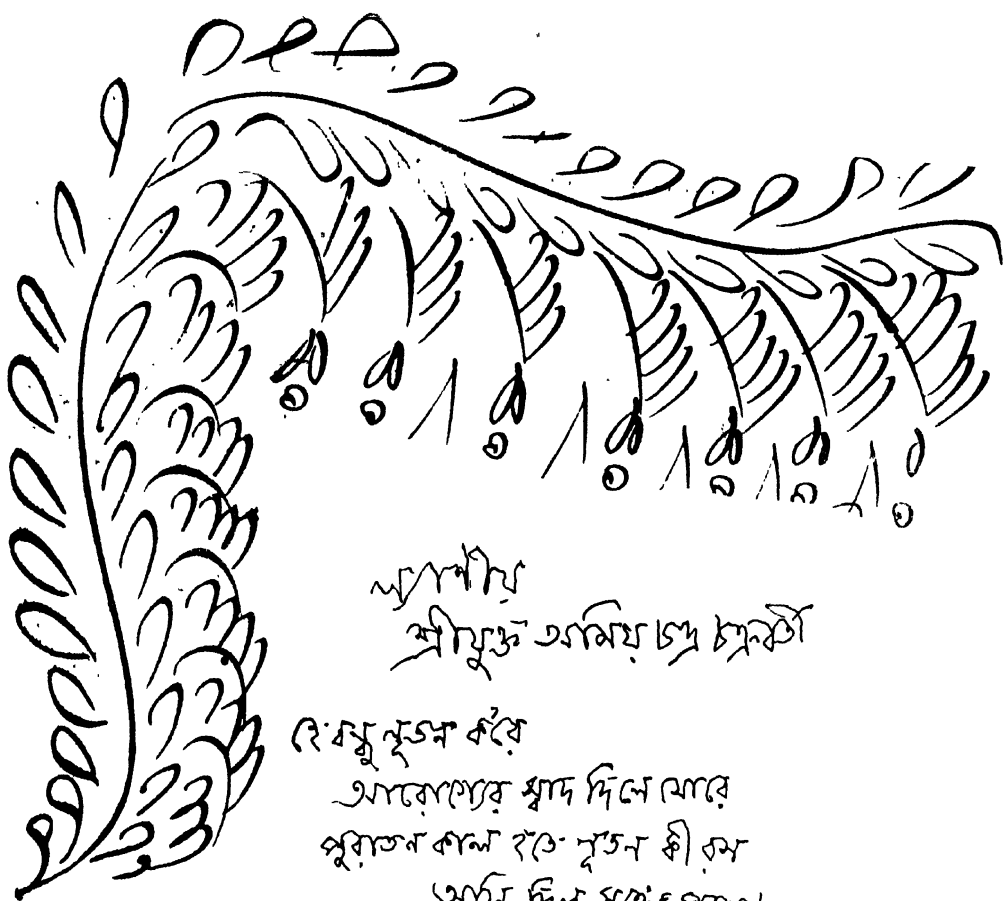 কল্যাণীয়
শ্রীযুক্ত অমিয় চন্দ্র চক্রবর্তী
হে বন্ধু নূতন করে
আরোগ্যের স্বাদ দিলে মোরে
পুরাতন কাল হতে নূতন কী রস
আনি দিল